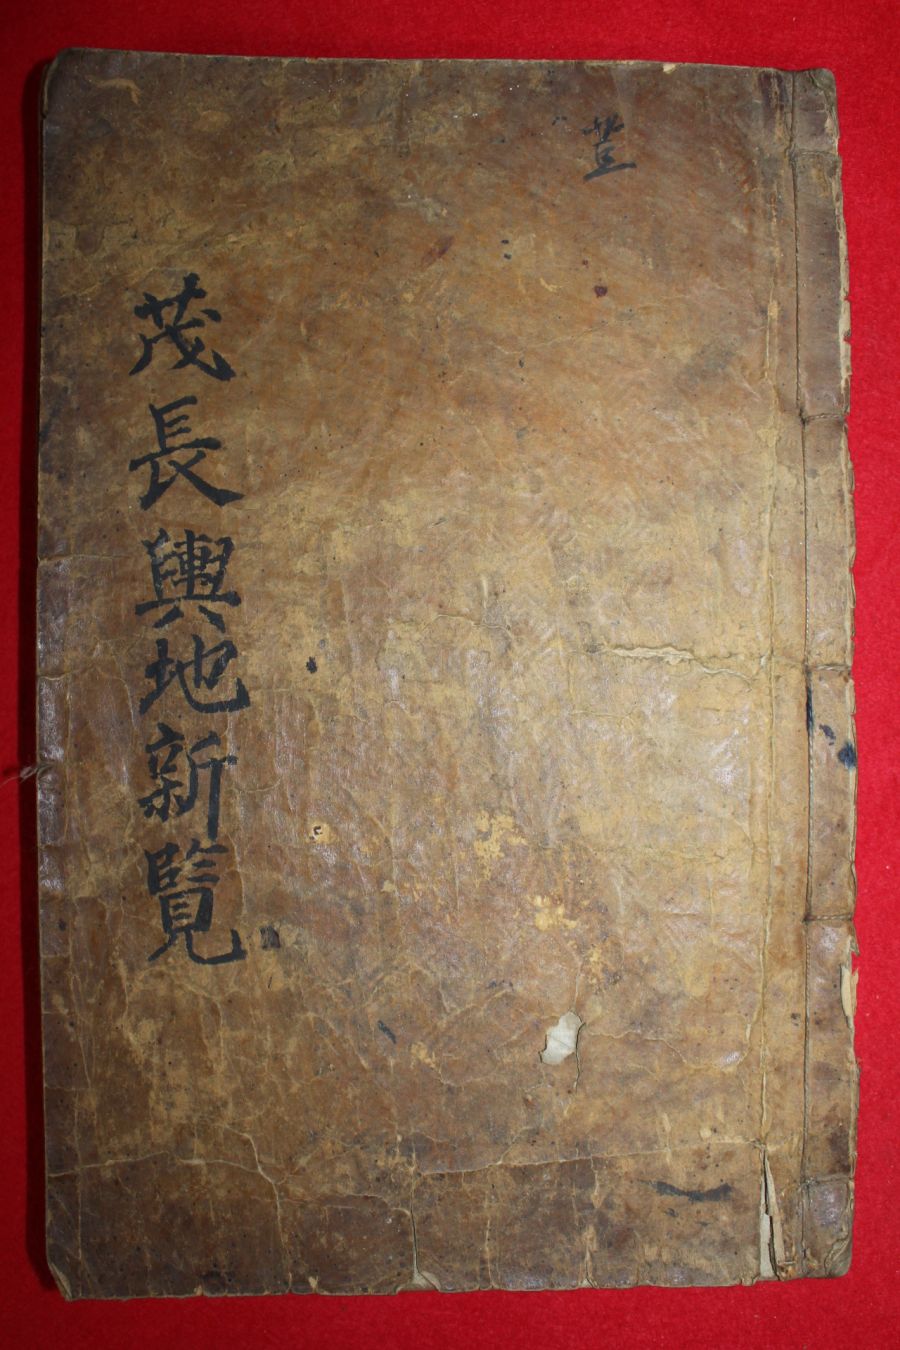 茂長輿地新覽